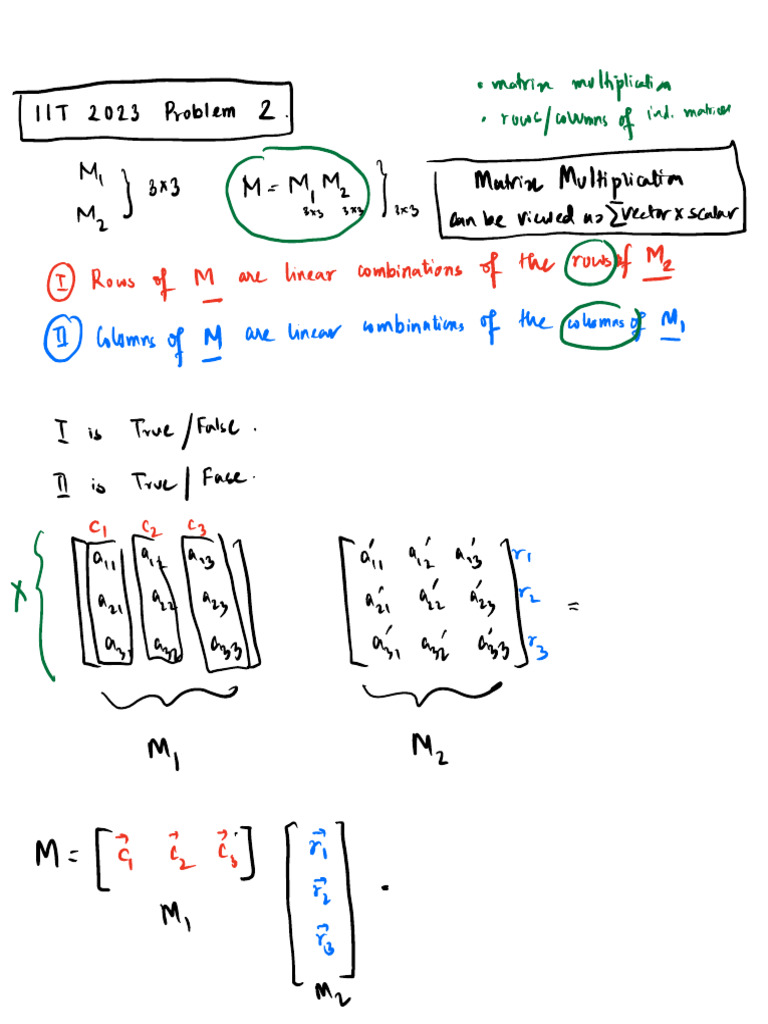 • matrix multiplication
IIT 2023 Problem 2.
• rows/columns of ind. matrices
M₁
M₂ } 3×3
M = M₁ M₂ } 3×3
3×3 3×3
Matrix Multiplication
can be viewed as ∑ vector × scalar
I Rows of M are linear combinations of the rows of M₂
II Columns of M are linear combinations of the columns of M₁
I is True/False.
II is True/Fase.
c₁ c₂ c₃
a₁₁ a₁₂ a₁₃ a′₁₁ a′₁₂ a′₁₃ r₁
X { a₂₁ a₂₂ a₂₃ a′₂₁ a′₂₂ a′₂₃ r₂ =
a₃₁ a₃₂ a₃₃ a′₃₁ a′₃₂ a′₃₃ r₃
M₁ M₂
M = [c⃗₁ c⃗₂ c⃗₃] [r⃗₁
r⃗₂ .
r⃗₃]
M₁
M₂